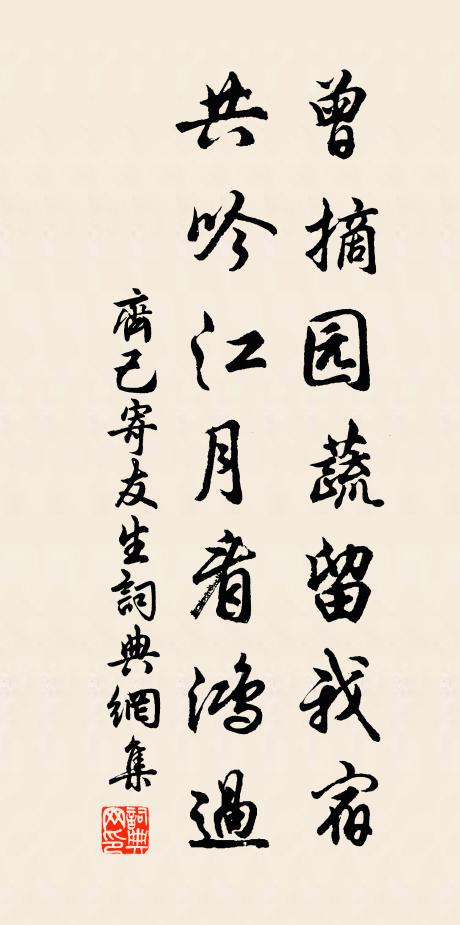 曾摘园蔬留我宿
共吟江月看鸿過
齊己寄友生詞典網集
詞典網印